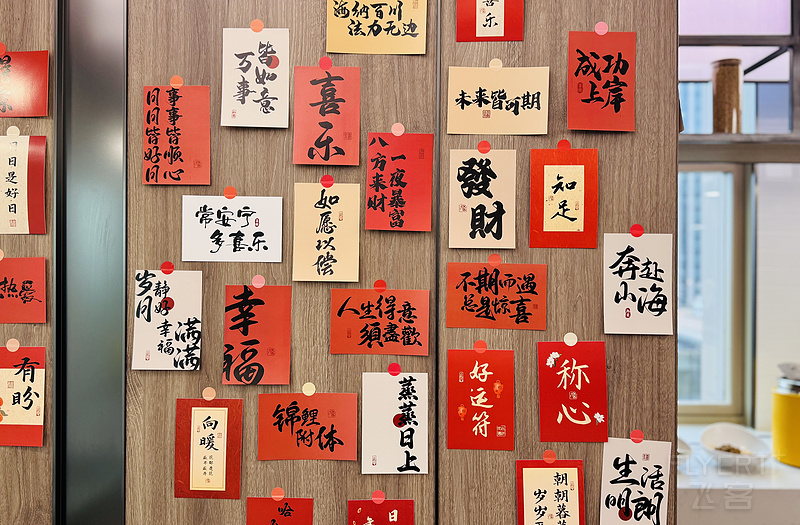 海纳百川
法力无边
喜
乐
皆如意
万事
喜
乐
事事皆顺心
日日皆好日
未来皆可期
成功
上岸
日是好日
一夜暴富
八方来财
發
財
知
足
常安宁
多喜乐
如愿以偿
奔赴
小海
热爱
静好
岁月
幸福
满满
幸
福
人生得意
須盡歡
不期而遇
总是惊喜
好运符
称
心
有
盼
向
暖
锦鲤
附体
蒸蒸日上
朝朝暮暮
岁岁
生活
明朗
哈
日
FLYERTEA
飞客